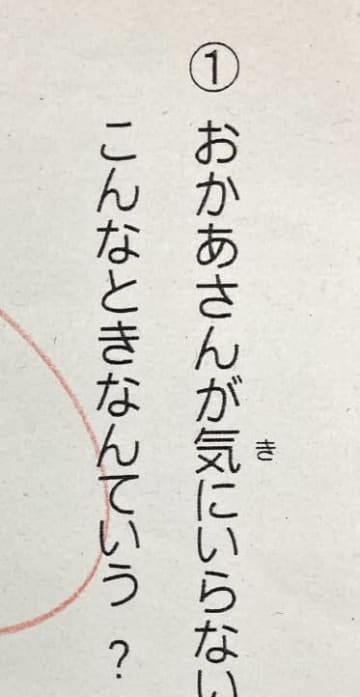 ① おかあさんが気にいらない
き
こんなときなんていう？